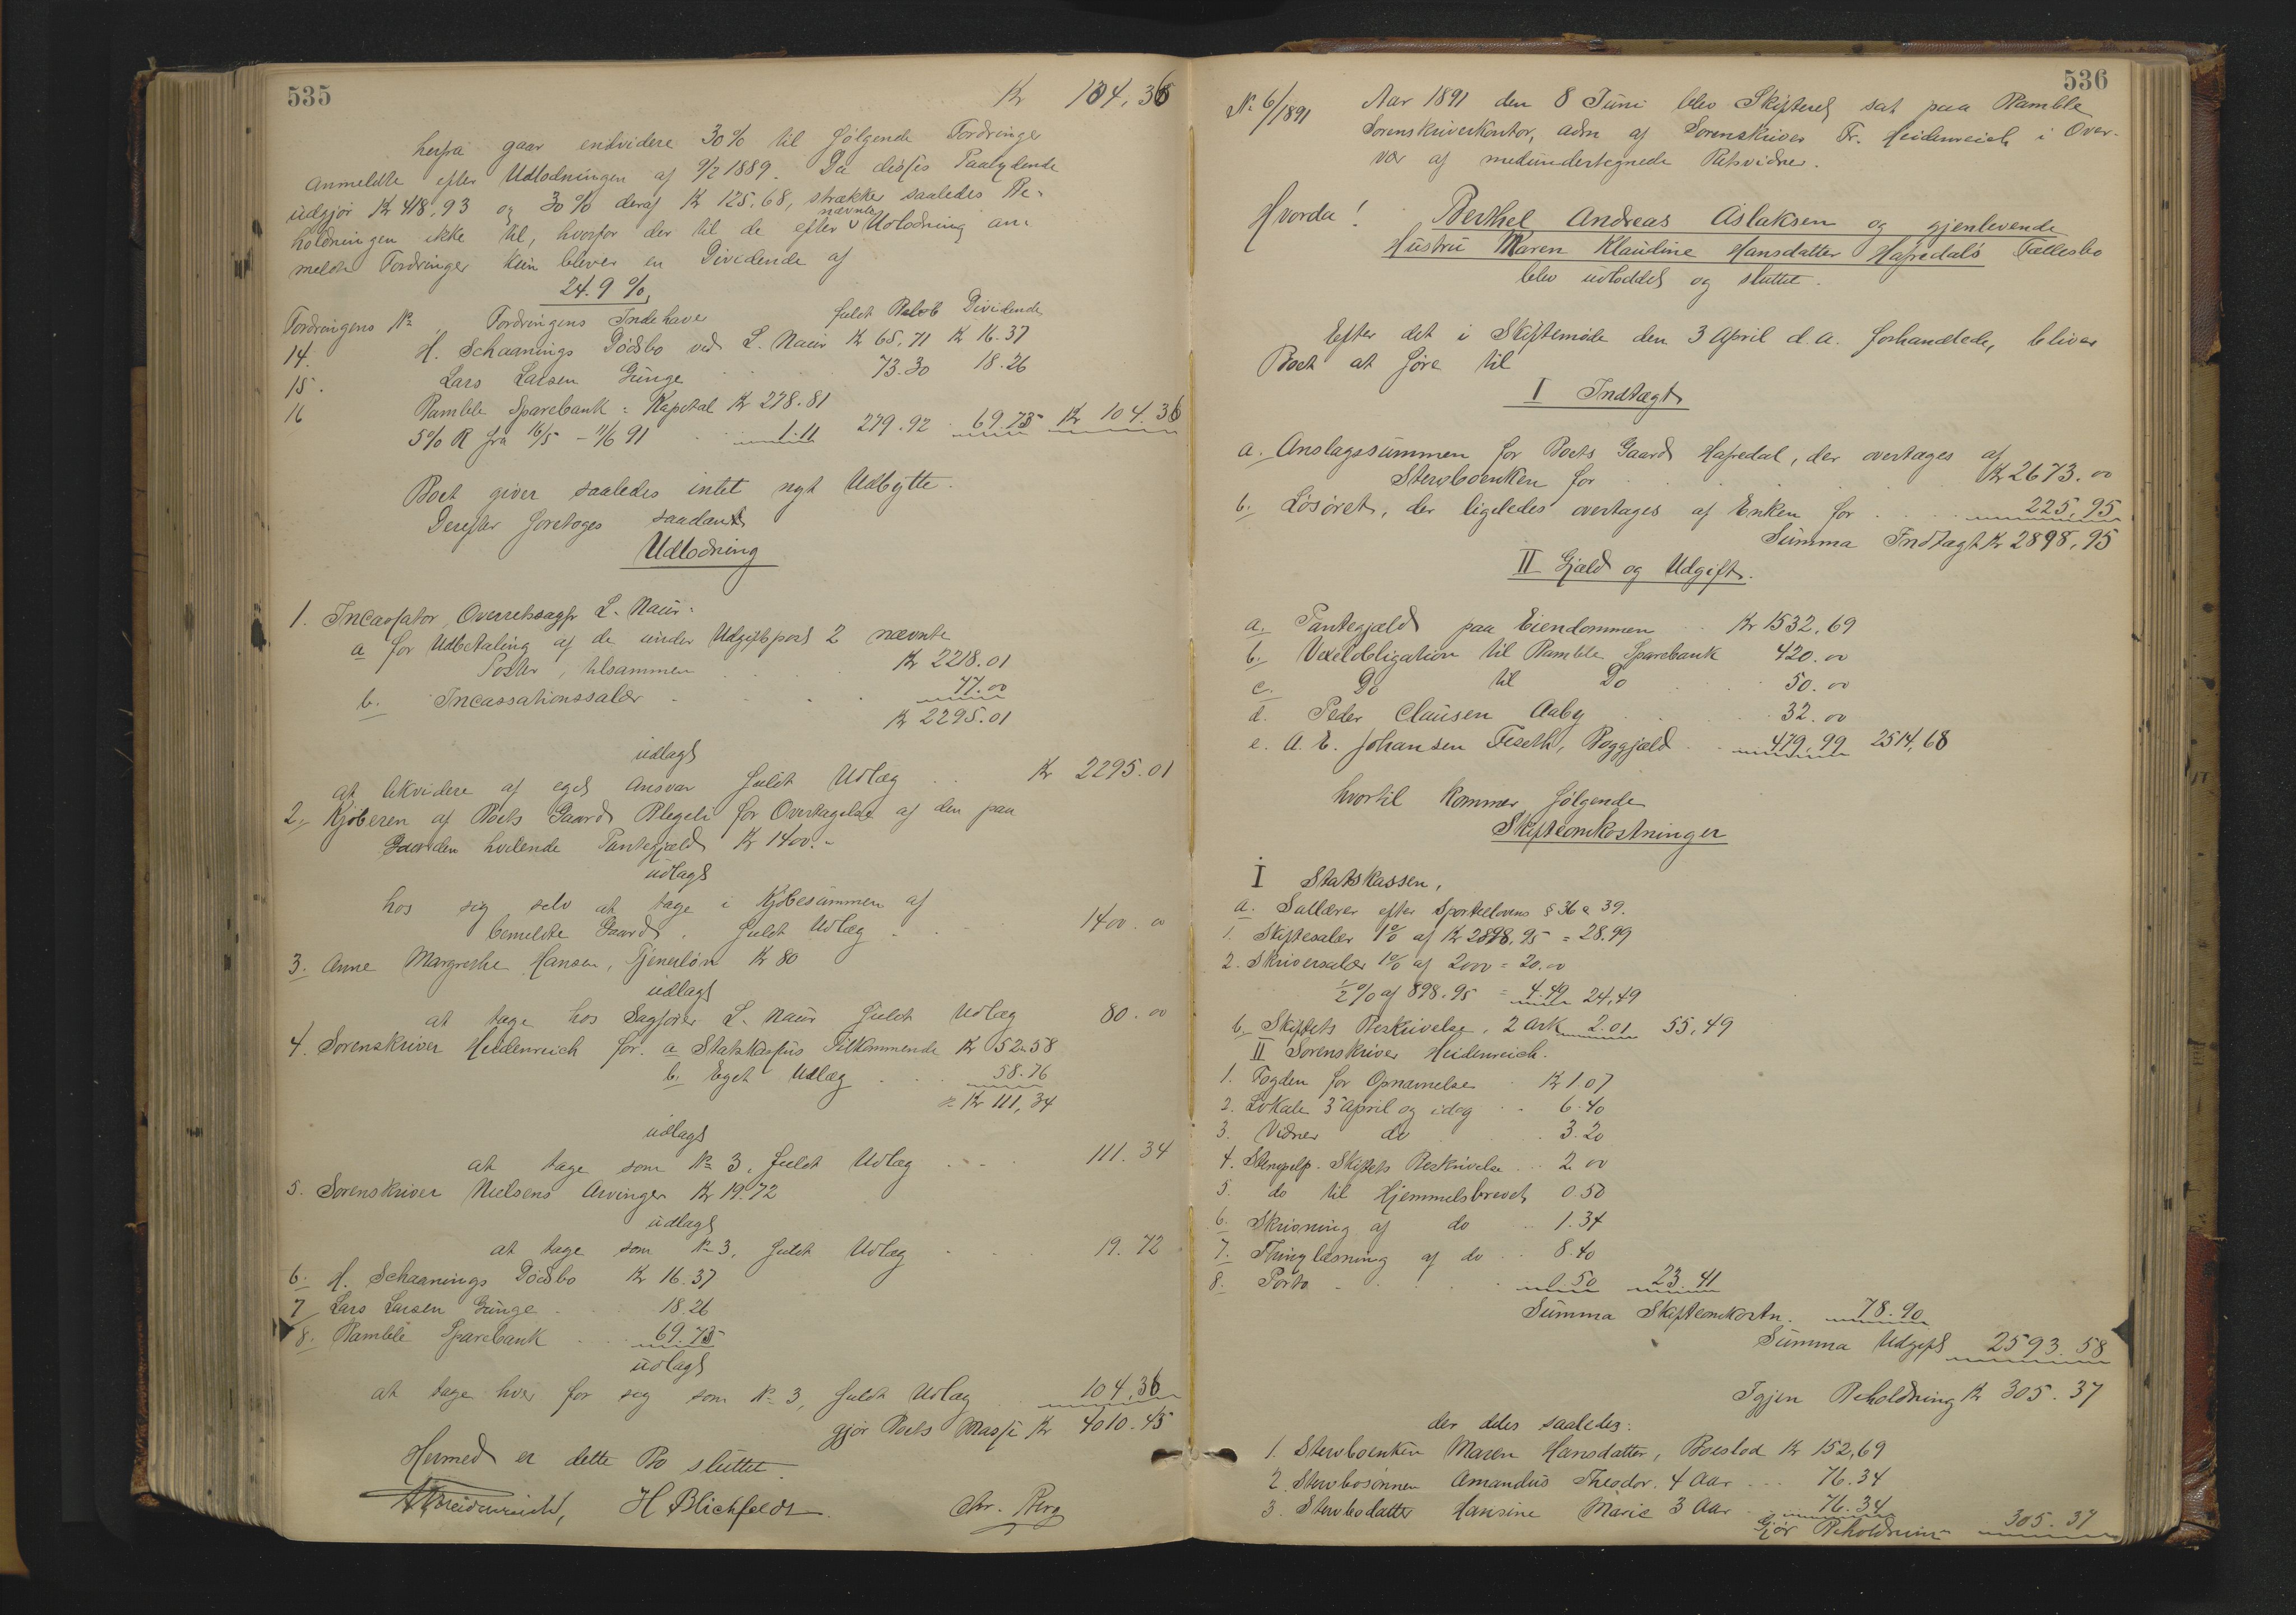 535
Kr 104,36
herfra gaar endvidere 30% til følgende Fordringer
anmeldte efter Udlodningen af 9/7 1889. Da disses Paalydende
udgjør Kr 418,93 og 30% deraf Kr 125,68, strækker saaledes Be-
holdningen ikke til, hvorfor der til de efter nævnte Udlodning an-
meldte Fordringer kun bliver en Dividende af
24.9%,
Fordringens No Fordringens Indehaver fuldt Beløb Dividende
14. H. Schaanings Dødsbo ved L. Naur Kr 65,71 Kr 16.37
15. Lars Larsen Grunge 73.30 18.26
16 Bamble Sparebank: Kapital Kr 278.81
5% R fra 16/5 - 11/6 91 1.11 279.92 69.73 Kr 104.36
Boet giver saaledes intet nyt Udbytte.
Derefter foretoges saadan
Udlodning
1. Incassator, Overretssagfr L. Naur.
a for Udbetaling af de under Udgiftspost 2 nævnte
Poster, tilsammen Kr 2218.01
b. Incassationssalær 77.00
Kr 2295.01
udlagt
at likvidere af eget Ansvar fuldt Udlæg Kr 2295.01
2. Kjøberen af Boets Gaard Blegeli for Overtagelse af den paa
Gaarden hvilende Pantegjæld Kr 1400.-
udlagt
hos sig selv at tage i Kjøbesummen af
bemeldte Gaard, fuldt Udlæg 1400.00
3. Anne Margrethe Hansen, Tjenerløn Kr 80
udlagt
at tage hos Sagfører L. Naur fuldt Udlæg 80.00
4. Sorenskriver Heidenreich for. a Statskassens Tilkommende Kr 52.58
b. Eget Udlæg 58.76
= Kr 111,34
udlagt
at tage som No 3, fuldt Udlæg 111.34
5. Sorenskriver Nielsens Arvinger Kr 19.72
udlagt
at tage som No 3, fuldt Udlæg 19.72
6. H. Schaanings Dødsbo Kr 16.37
7 Lars Larsen Grunge 18.26
8. Bamble Sparebank 69.73
udlagt
at tage hver for sig som No 3, fuldt Udlæg 104,36
gjør Boets Masse Kr 4010.43
Hermed er dette Bo sluttet.
Heidenreich, H Blichfeldt Chr. Berg
536
No 6/1891 Aar 1891 den 8 Juni blev Skifteret sat paa Bamble
Sorenskriverkontor, adm af Sorenskriver Fr. Heidenreich i Over-
vær af medundertegnede Retsvidner.
Hvorda! Berthel Andreas Aslaksen og gjenlevende
Hustru Maren Klaudine Hansdatter Hafredals Fællesbo
blev udloddet og sluttet.
Efter det i Skiftemøde den 3 April d.a. forhandlede, bliver
Boet at føre til
I Indtægt
a. Anslagssummen for Boets Gaard Hafredal, der overtages af
Stervboenken for Kr 2673.00
b. Løsøret, der ligeledes overtages af Enken for 225,95
Summa Indtægt Kr 2898,95
II Gjæld og Udgift.
a. Pantegjæld paa Eiendommen Kr 1532,69
b. Vexelobligation til Bamble Sparebank 420.00
c. Do til Do 50.00
d. Peder Clausen Aaby 32.00
e. A. E. Johansen Fiseth, Boggjæld 479,99 2514,68
hvortil kommer følgende
Skifteomkostninger
I Statskassen,
a. Sallærer efter Sportellovens § 36 & 39.
1. Skiftesalær 1% af Kr 2898,95 = 28.99
2. Skriversalær 1% af 2000 = 20.00
1/2% af 898.95 = 4.49 24,49
b. Skiftets Beskrivelse, 2 Ark 2.01 55,49
II Sorenskriver Heidenreich.
1. Fogden for Opnævnelse Kr 1.07
2. Lokale 3 April og idag 6.40
3. Vidner do 3.20
4. Stempelp. Skiftets Beskrivelse 2.00
5. do til Hjemmelsbrevet 0.50
6. Skrivning af do 1.34
7. Thinglæsning af do 8.40
8. Porto 0.50 23.41
Summa Skifteomkostn. 78.90
Summa Udgift 2593.58
Igjen Beholdning Kr 305.37
der deles saaledes:
1. Stervboenken Maren Hansdatter, Boeslod Kr 152,69
2. Stervbosønnen Amandus Theodor. 4 Aar 76.34
3. Stervbodatter Hansine Marie 3 Aar 76.34
Gjør Beholdning 305.37